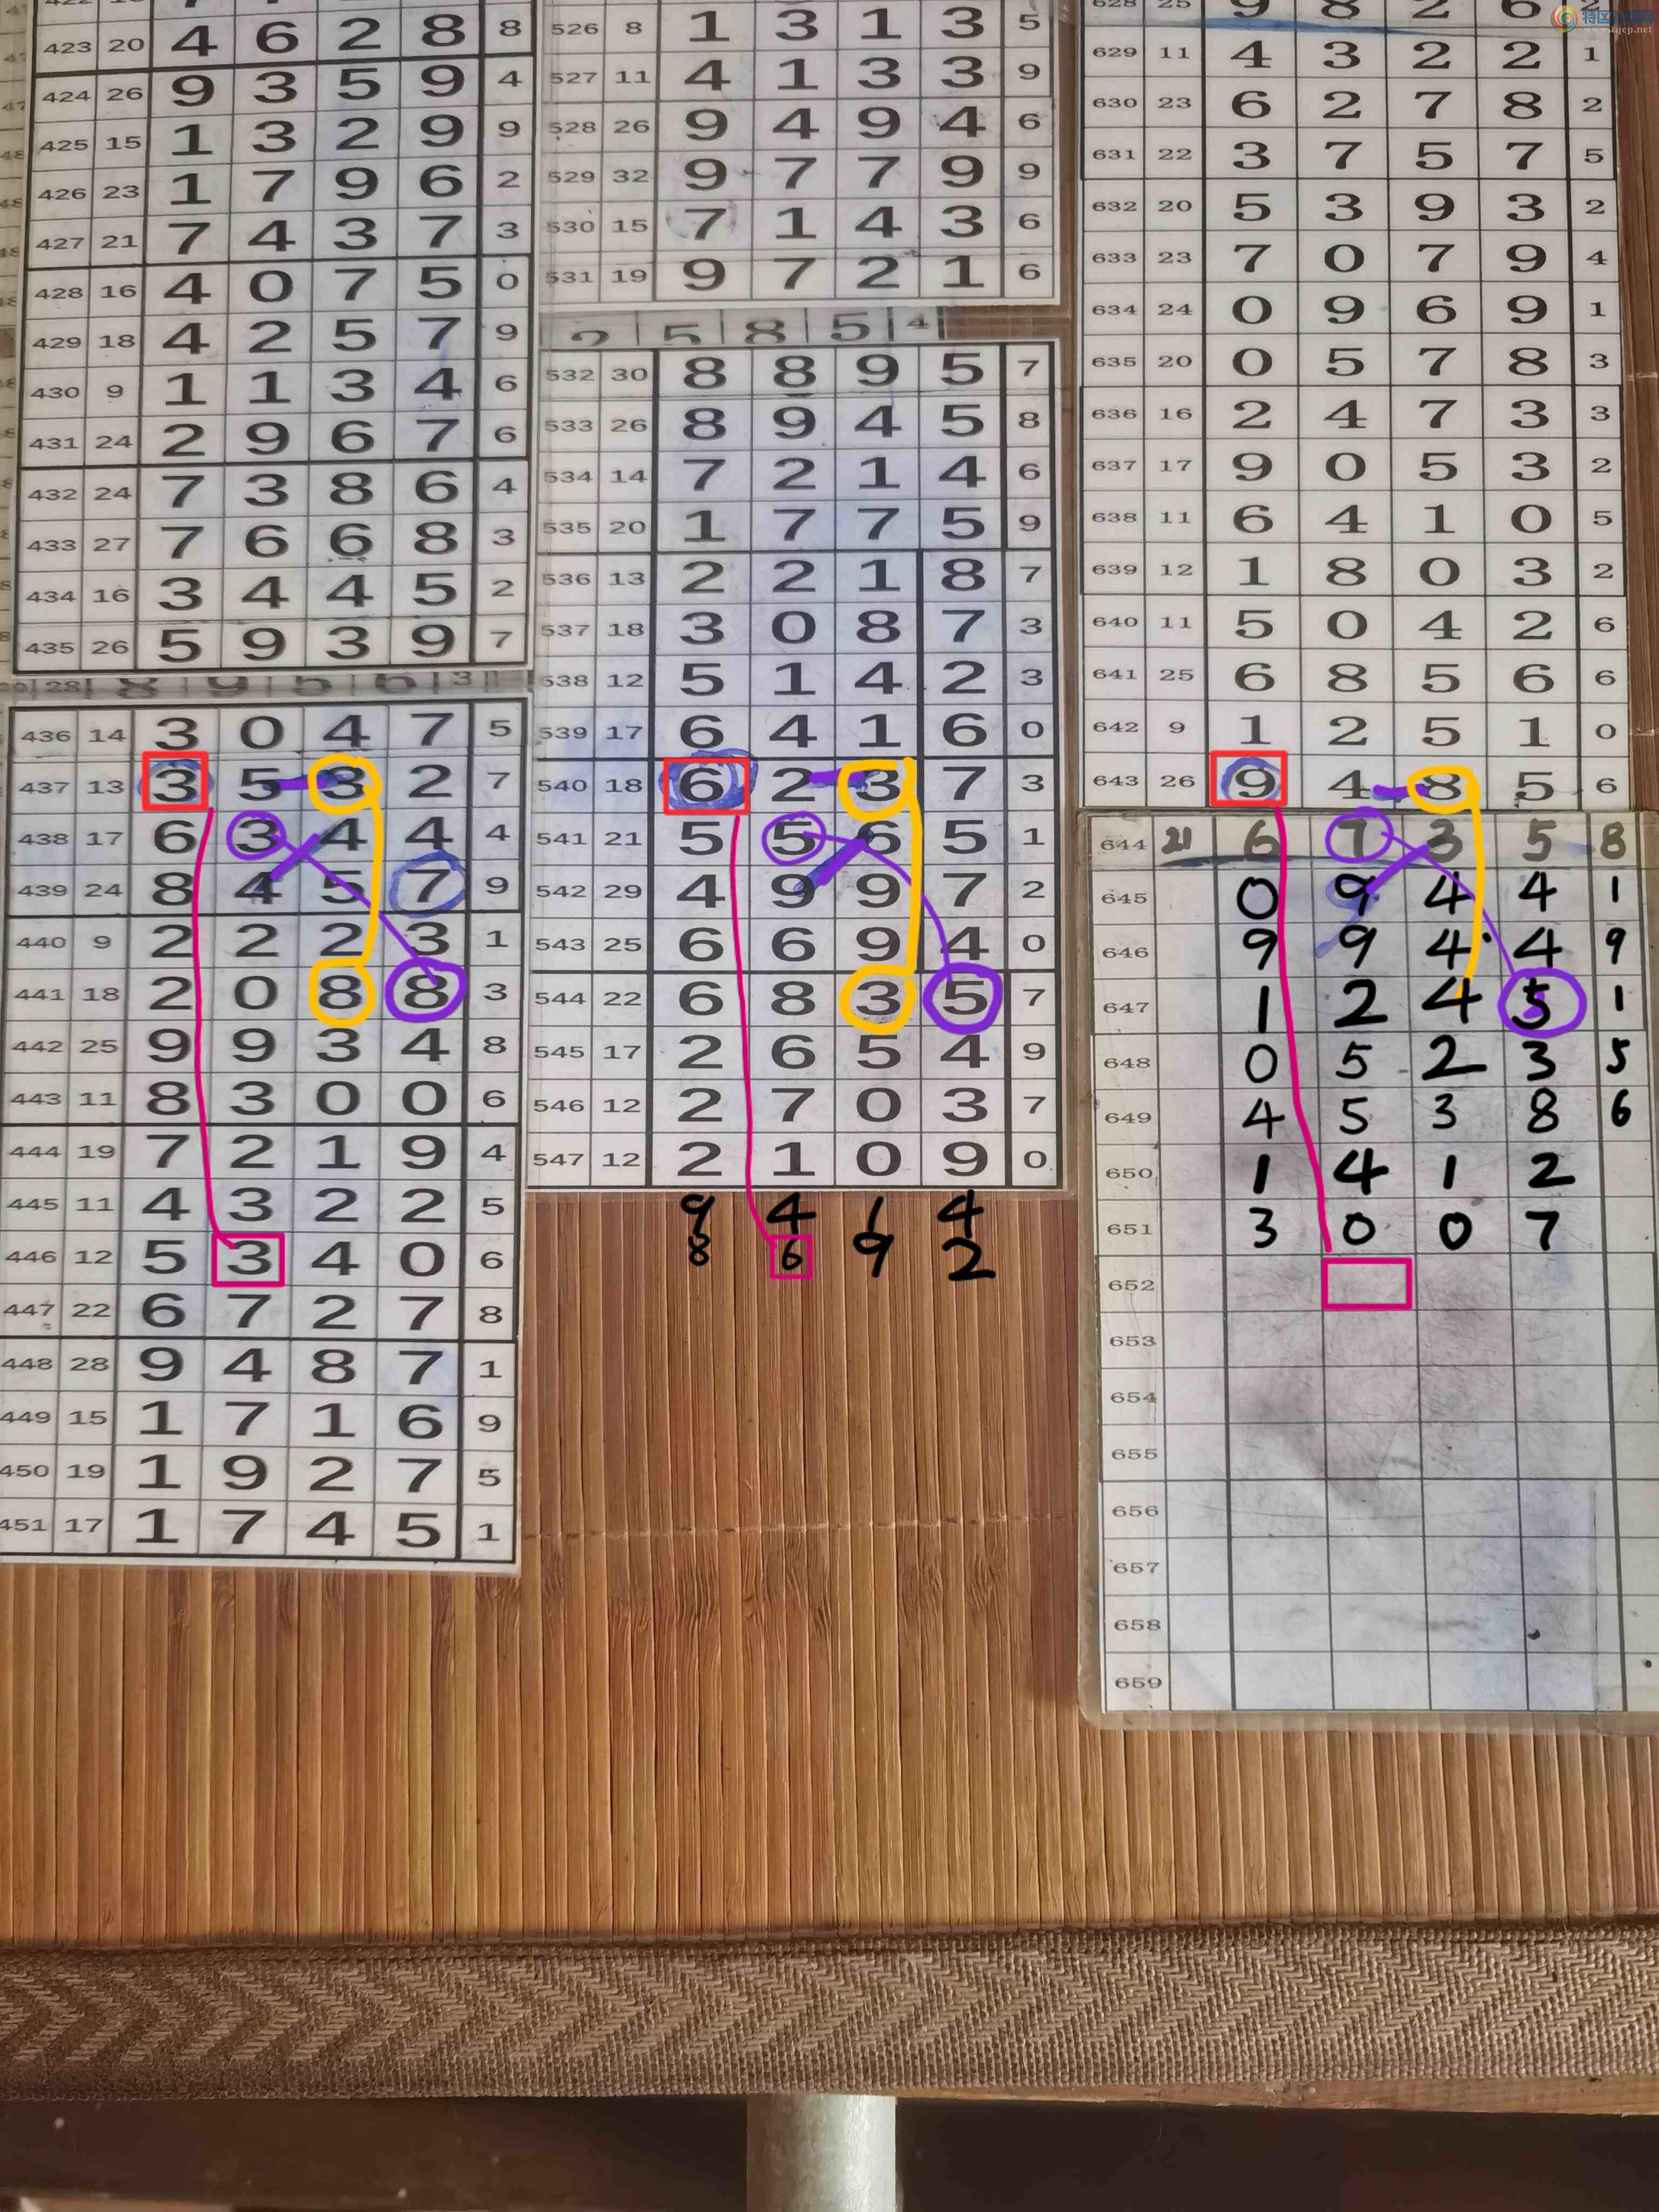 特区彩票网
www.tqcp.net
423 20 4 6 2 8 8
424 26 9 3 5 9 4
425 15 1 3 2 9 9
426 23 1 7 9 6 2
427 21 7 4 3 7 3
428 16 4 0 7 5 0
429 18 4 2 5 7 9
430 9 1 1 3 4 6
431 24 2 9 6 7 6
432 24 7 3 8 6 4
433 27 7 6 6 8 3
434 16 3 4 4 5 2
435 26 5 9 3 9 7
28 8 9 5 6 3
436 14 3 0 4 7 5
437 13 3 5 3 2 7
438 17 6 3 4 4 4
439 24 8 4 5 7 9
440 9 2 2 2 3 1
441 18 2 0 8 8 3
442 25 9 9 3 4 8
443 11 8 3 0 0 6
444 19 7 2 1 9 4
445 11 4 3 2 2 5
446 12 5 3 4 0 6
447 22 6 7 2 7 8
448 28 9 4 8 7 1
449 15 1 7 1 6 9
450 19 1 9 2 7 5
451 17 1 7 4 5 1
526 8 1 3 1 3 5
527 11 4 1 3 3 9
528 26 9 4 9 4 6
529 32 9 7 7 9 9
530 15 7 1 4 3 6
531 19 9 7 2 1 6
2 5 8 5 4
532 30 8 8 9 5 7
533 26 8 9 4 5 8
534 14 7 2 1 4 6
535 20 1 7 7 5 9
536 13 2 2 1 8 7
537 18 3 0 8 7 3
538 12 5 1 4 2 3
539 17 6 4 1 6 0
540 18 6 2 3 7 3
541 21 5 5 6 5 1
542 29 4 9 9 7 2
543 25 6 6 9 4 0
544 22 6 8 3 5 7
545 17 2 6 5 4 9
546 12 2 7 0 3 7
547 12 2 1 0 9 0
9 4 1 4
8 6 9 2
628 25 9 8 2 6 2
629 11 4 3 2 2 1
630 23 6 2 7 8 2
631 22 3 7 5 7 5
632 20 5 3 9 3 2
633 23 7 0 7 9 4
634 24 0 9 6 9 1
635 20 0 5 7 8 3
636 16 2 4 7 3 3
637 17 9 0 5 3 2
638 11 6 4 1 0 5
639 12 1 8 0 3 2
640 11 5 0 4 2 6
641 25 6 8 5 6 6
642 9 1 2 5 1 0
643 26 9 4 8 5 6
644 21 6 7 3 5 8
645 0 9 4 4 1
646 9 9 4 4 9
647 1 2 4 5 1
648 0 5 2 3 5
649 4 5 3 8 6
650 1 4 1 2
651 3 0 0 7
652
653
654
655
656
657
658
659